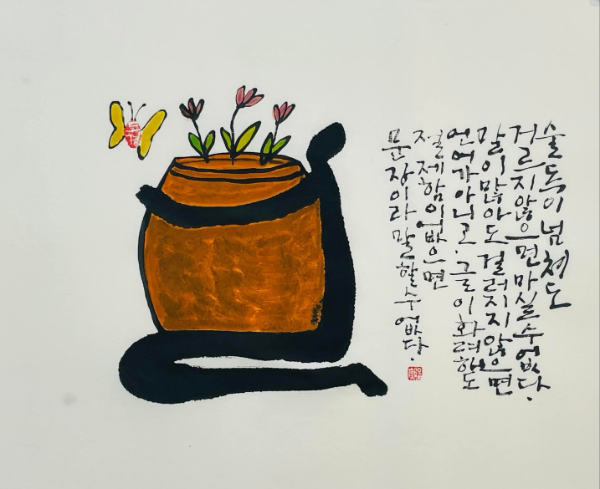 술독이 넘쳐도
걸르지 않으면 마실수 없다.
말이 많아도 걸러지지 않으면
언어가 아니고. 글이 화려해도
절제함이 없으면
문장이라 말할수 없다.